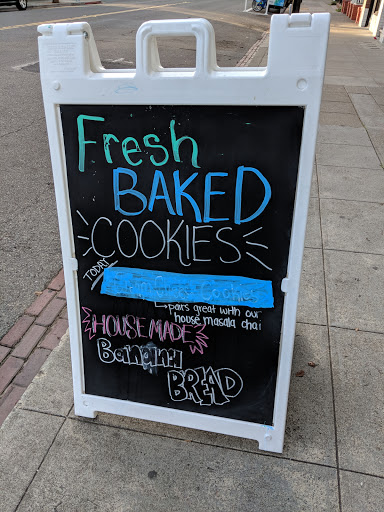 Fresh
BAKED
COOKIES
TODAY
Cookies
pairs great with our
house masala chai
HOUSEMADE
Banana
BREAD